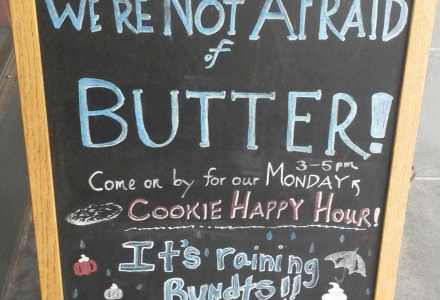 WE'RE NOT AFRAID
of
BUTTER!
3-5pm
Come on by for our MONDAY
COOKIE HAPPY HOUR!
It's raining
BUNDTS!!